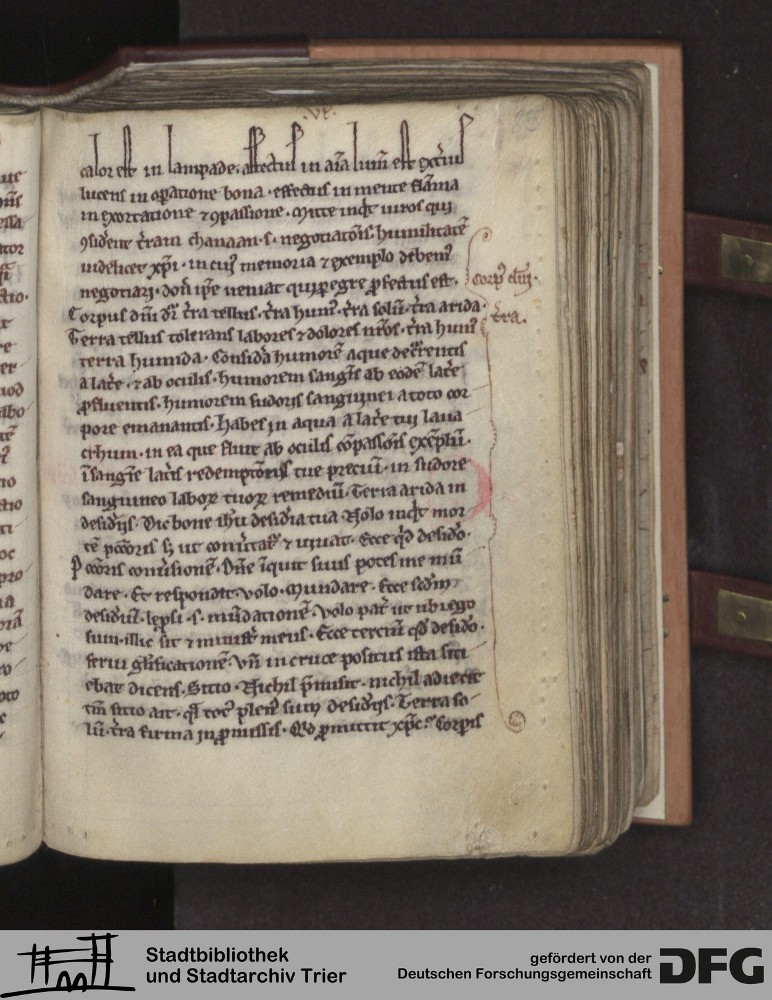 calor est in lampade. affectus in aīa lum̄ est exteri᷒
lucens in oꝑatione bona · effectus in mente flāma
in exortatione ⁊ ꝯpassione · Mitte inqͥt uiros qui
ꝯsiderēt t̄ram chanaan · s · negotiatōis · humilitatē
uidelicet xp̄i · in cui᷒ memoria ⁊ exemplo debem᷒
negotiari · don̄ ip̄e ueniat qui ꝑegre ꝓfectus est ·
Corpus dn̄i dr̄ t̄ra tellus · t̄ra hum᷒ · t̄ra solū · t̄ra arida ·
Terra tellus tolerans labores ⁊ dolores nr̄os · t̄ra hum᷒
terra humida · Considā humorē aque decurrentis
a lat̄e · ⁊ ab oculis · humorem sangīs ab eodē lat̄e
ꝓfluentis · humorem sudoris sanguinei a toto cor
pore emanantis · Habes in aqua a lat̄e tui laua
crum · in ea que fluit ab oculis cōpassiōis exēplū ·
ī sangīe lat̄is redemptōis tue preciū · in sudore
sanguineo laboꝝ tuoꝝ remediū · Terra arida in
desid̄ijs · Dic bone ih̄u desid̄ia tua · Nolo inqͥt mor
tē pctōris sꝫ ut conūtat᷒ ⁊ uiuat · Ecce qͥd desid̄o ·
Pctōris conūsionē · Dn̄e īquit si uis potes me mū
dare · Et respondit · uolo · Mundare · Ecce scd̄m
desid̄iū · lep̄si · s · mūdationē · Volo pat̄ ut ubi ego
sum · illic sit ⁊ minist̄ meus · Ecce terciū qd̄ desid̄o ·
serui gl̄ificationē · Vn̄ in cruce positus ista siti
ebat dicens · Sitio · Nichil p̄misit · nichil adiecit
tm̄ sitio ait · qͣ tot᷒ plen᷒ sum desid̄ijs · Terra so
lū · t̄ra firma in ꝓmissis · Qͥd ꝓmittit xp̄c · Corpis
Corp᷒ dn̄i ·
t̄ra ·
Stadtbibliothek
und Stadtarchiv Trier
gefördert von der
Deutschen Forschungsgemeinschaft
DFG